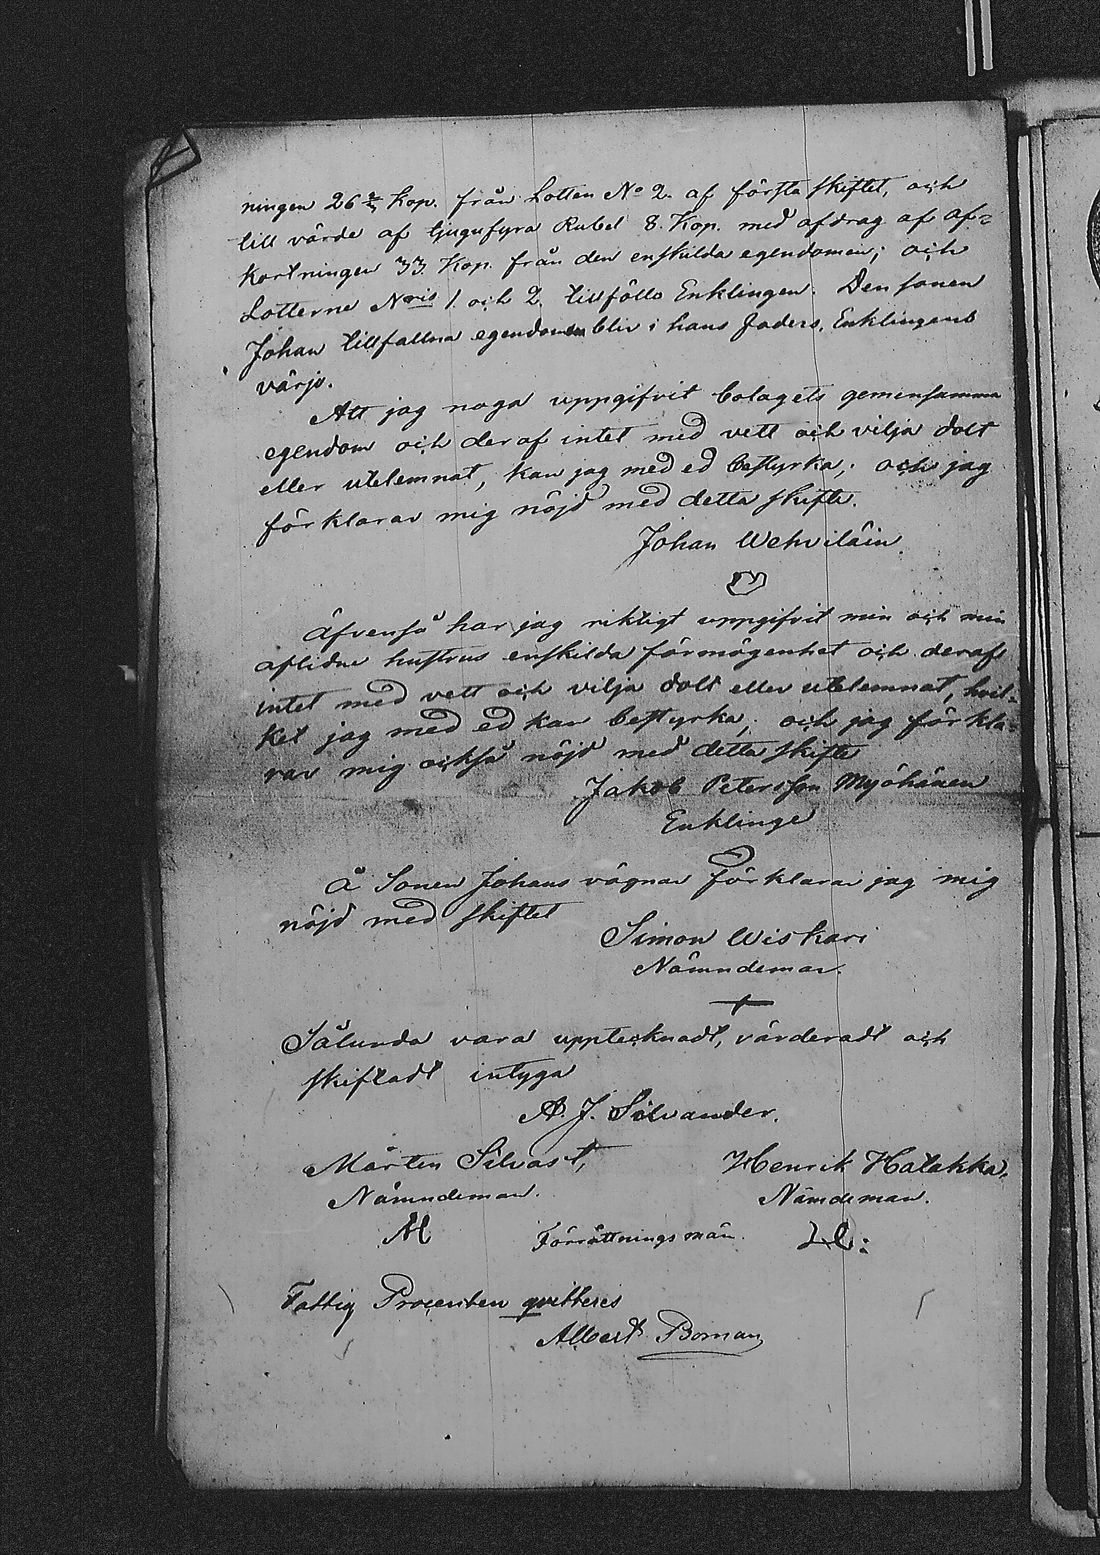 ningen 26 2/3 Kop. från Lotten No 2. af första skiftet, och
till värde af tjugufyra Rubel 8. Kop. med afdrag af af=
kortningen 33 Kop. från den enskilda egendomen; och
Lotterne Nris 1 och 2. tillföllo Enklingen. Den sonen
Johan tillfallna egendomen bliv i hans faders, Enklingens
värjo.
Att jag noga uppgifvit bolagets gemensamma
egendom och deraf intet med vett och vilja dolt
eller utelemnat, kan jag med ed bestyrka; och jag
förklarar mig nöjd med detta skifte.
Johan Wehviläin
Äfvenså har jag riktigt uppgifvit min och min
aflidne hustrus enskilda förmögenhet och deraf
intet med vett och vilja dolt eller utelemnat, hvil=
ket jag med ed kan bestyrka; och jag förkla=
rar mig också nöjd med detta skifte
Jakob Petersson Myöhänen
Enklinge
Å Sonen Johans vägnar förklarar jag mig
nöjd med skiftet
Simon Wiskari
Nämndeman.
Sålunda vara upptecknadt, värderadt och
skiftadt intyga
A. J. Silvander.
Mårten Silvast,
Henrik Halakka,
Nämndeman.
Nämdeman.
Förrättningsmän.
Fattig Procenten qvitteres
Albert Boman